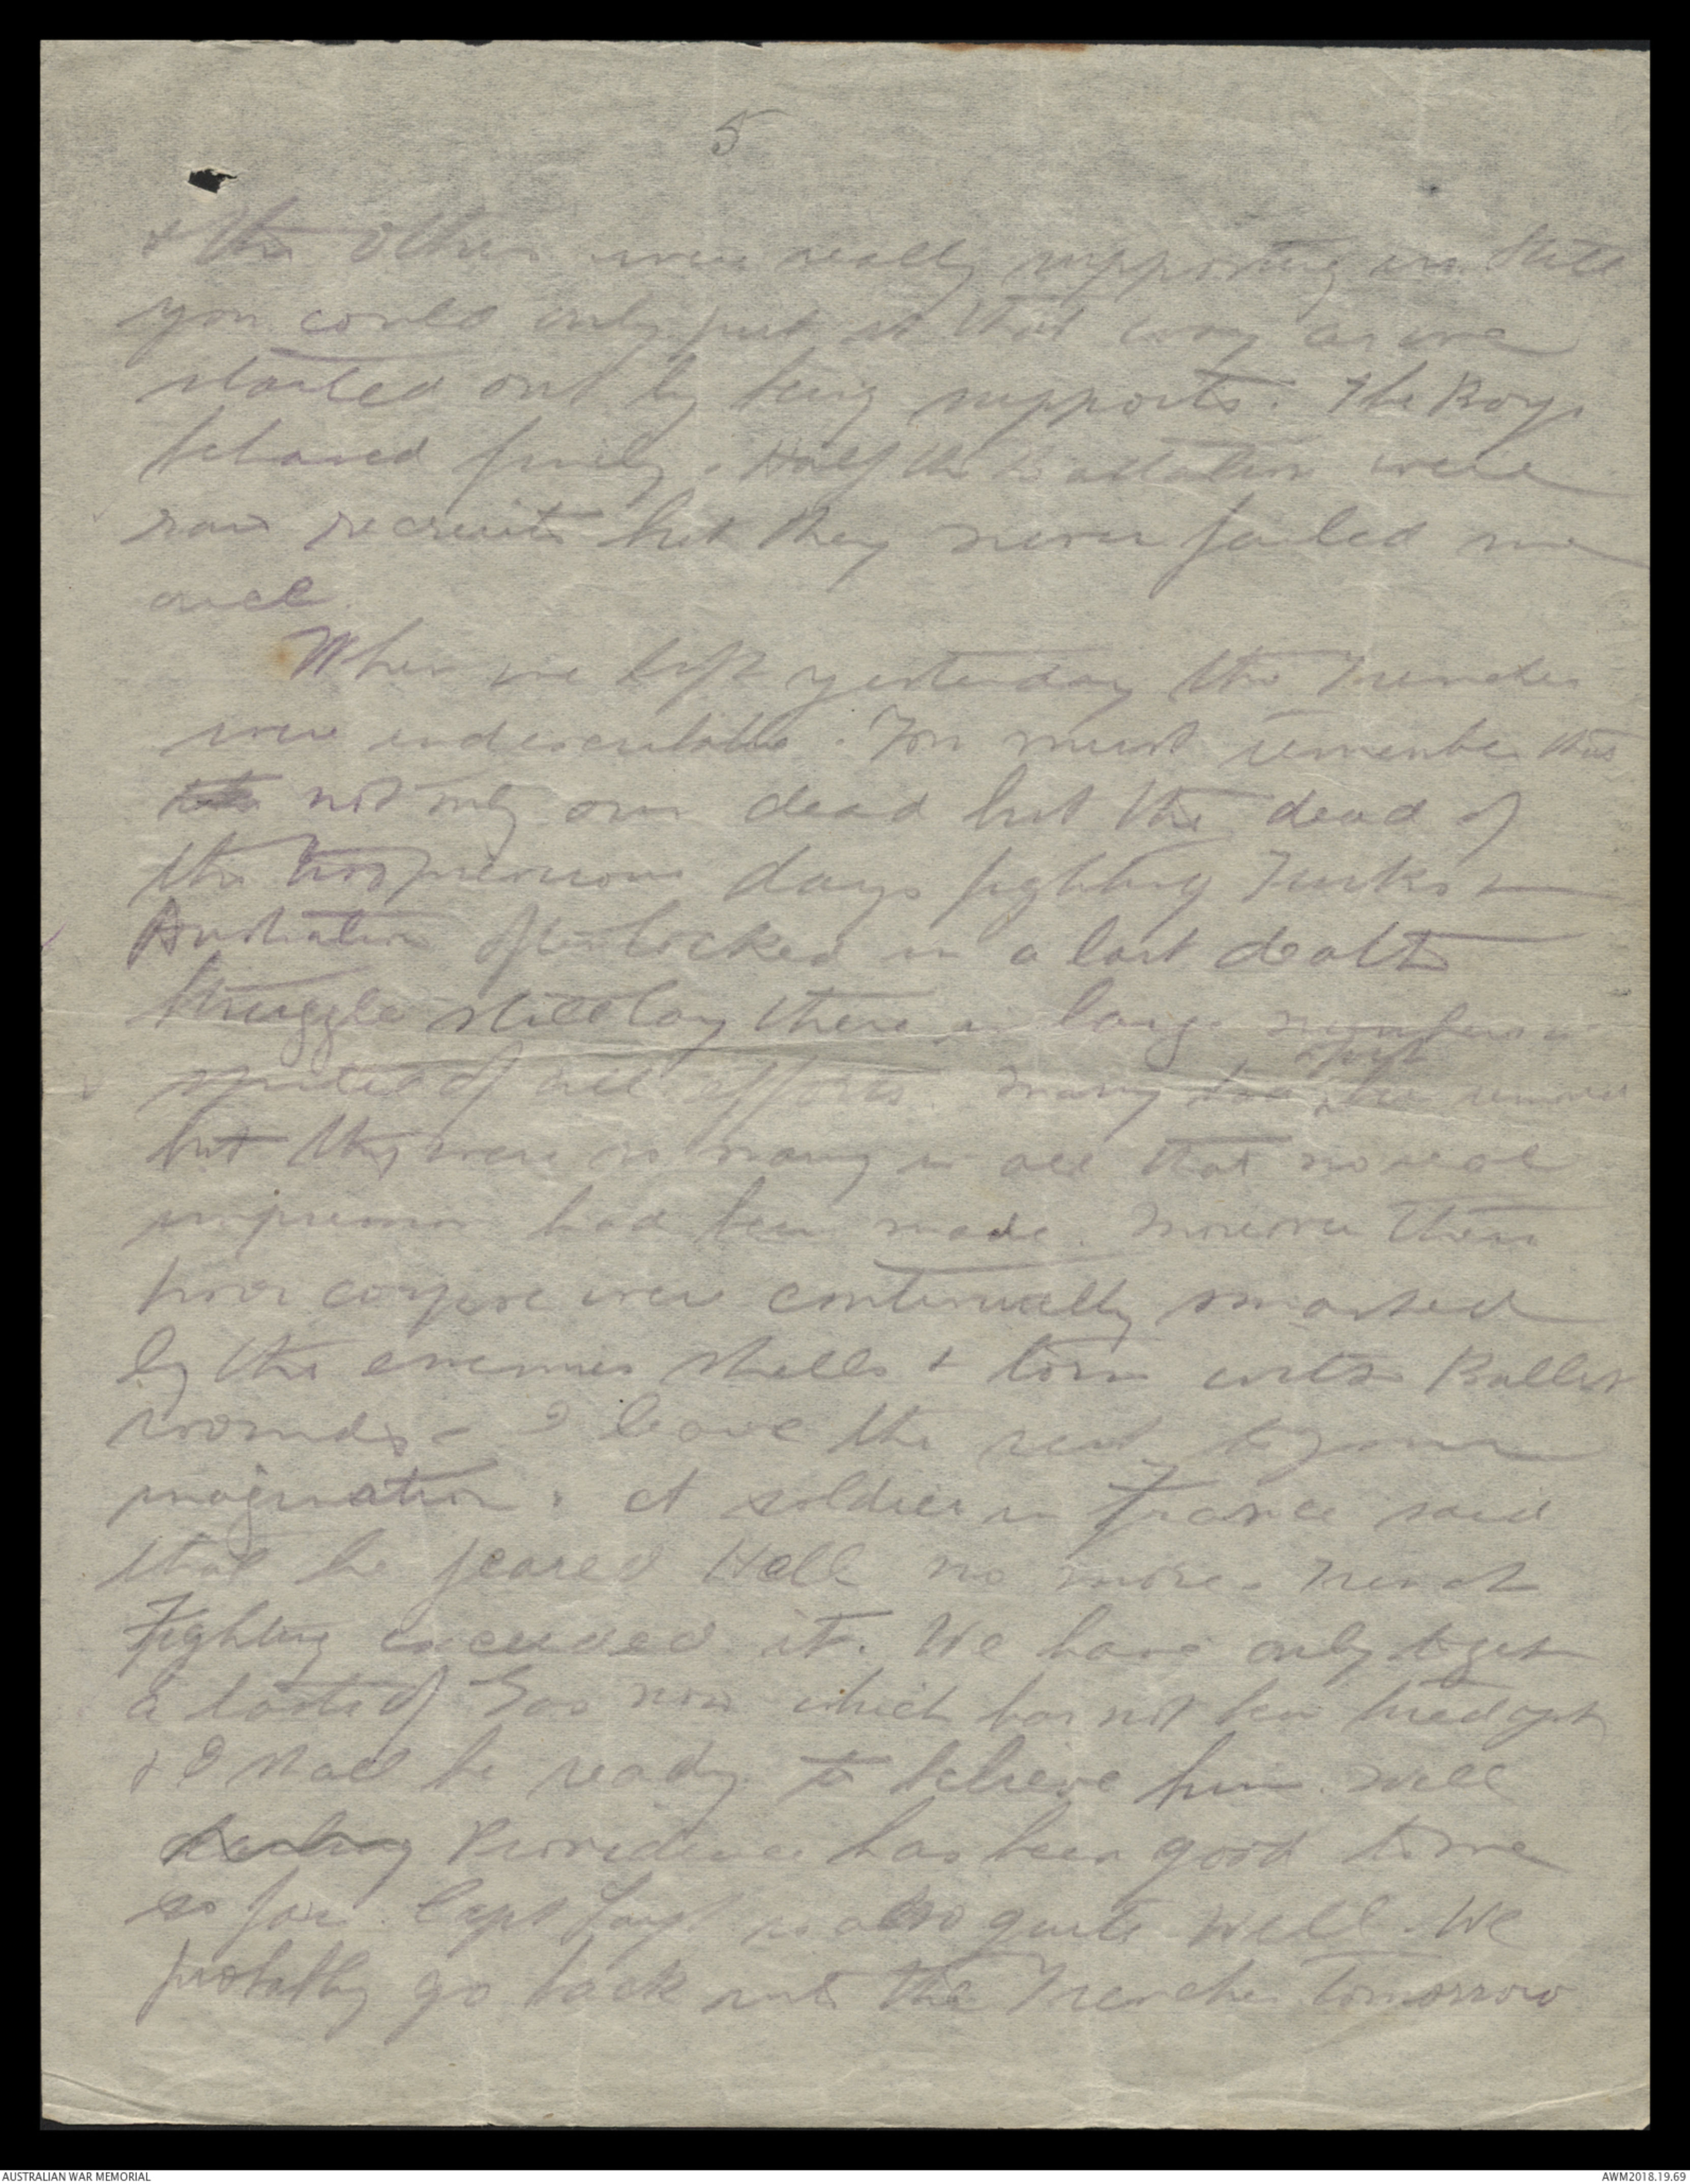 5
& the others were really supporting us. Still
you could only put it that way as we
started out by being supports. The Boys
behaved finely. Half the Battalion were
raw recruits but they never failed me
once
When we left yesterday the Trenches
were indescribable. You must remember that
not only our dead but the dead of
the two previous days fighting Turks &
Australian often locked in a last death
struggle still lay there in large numbers in
spite of all efforts. Many had been removed
but they were so many in all that no real
impression had been made. Moreover these
poor corpse were continually smashed
by the enemies shells & torn with Bullet
wounds - I leave the rest to your
imagination. A soldier in France said
that he feared Hell no more. Trench
Fighting exceeded it. We have only to get
a taste of Gas now which has not been tried yet
& I shall be ready to believe him. Well
Providence has been good to me
so far. Capt is also quite well. We
probably go back into the Trenches tomorrow
AUSTRALIAN WAR MEMORIAL
AWM2018.19.69